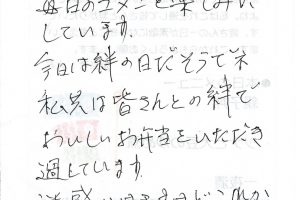 毎日のユメニを楽しみに
しています。
今日は絆の日だそうで
私共は皆さんとの絆で
おいしいお弁当をいただき
過しています。